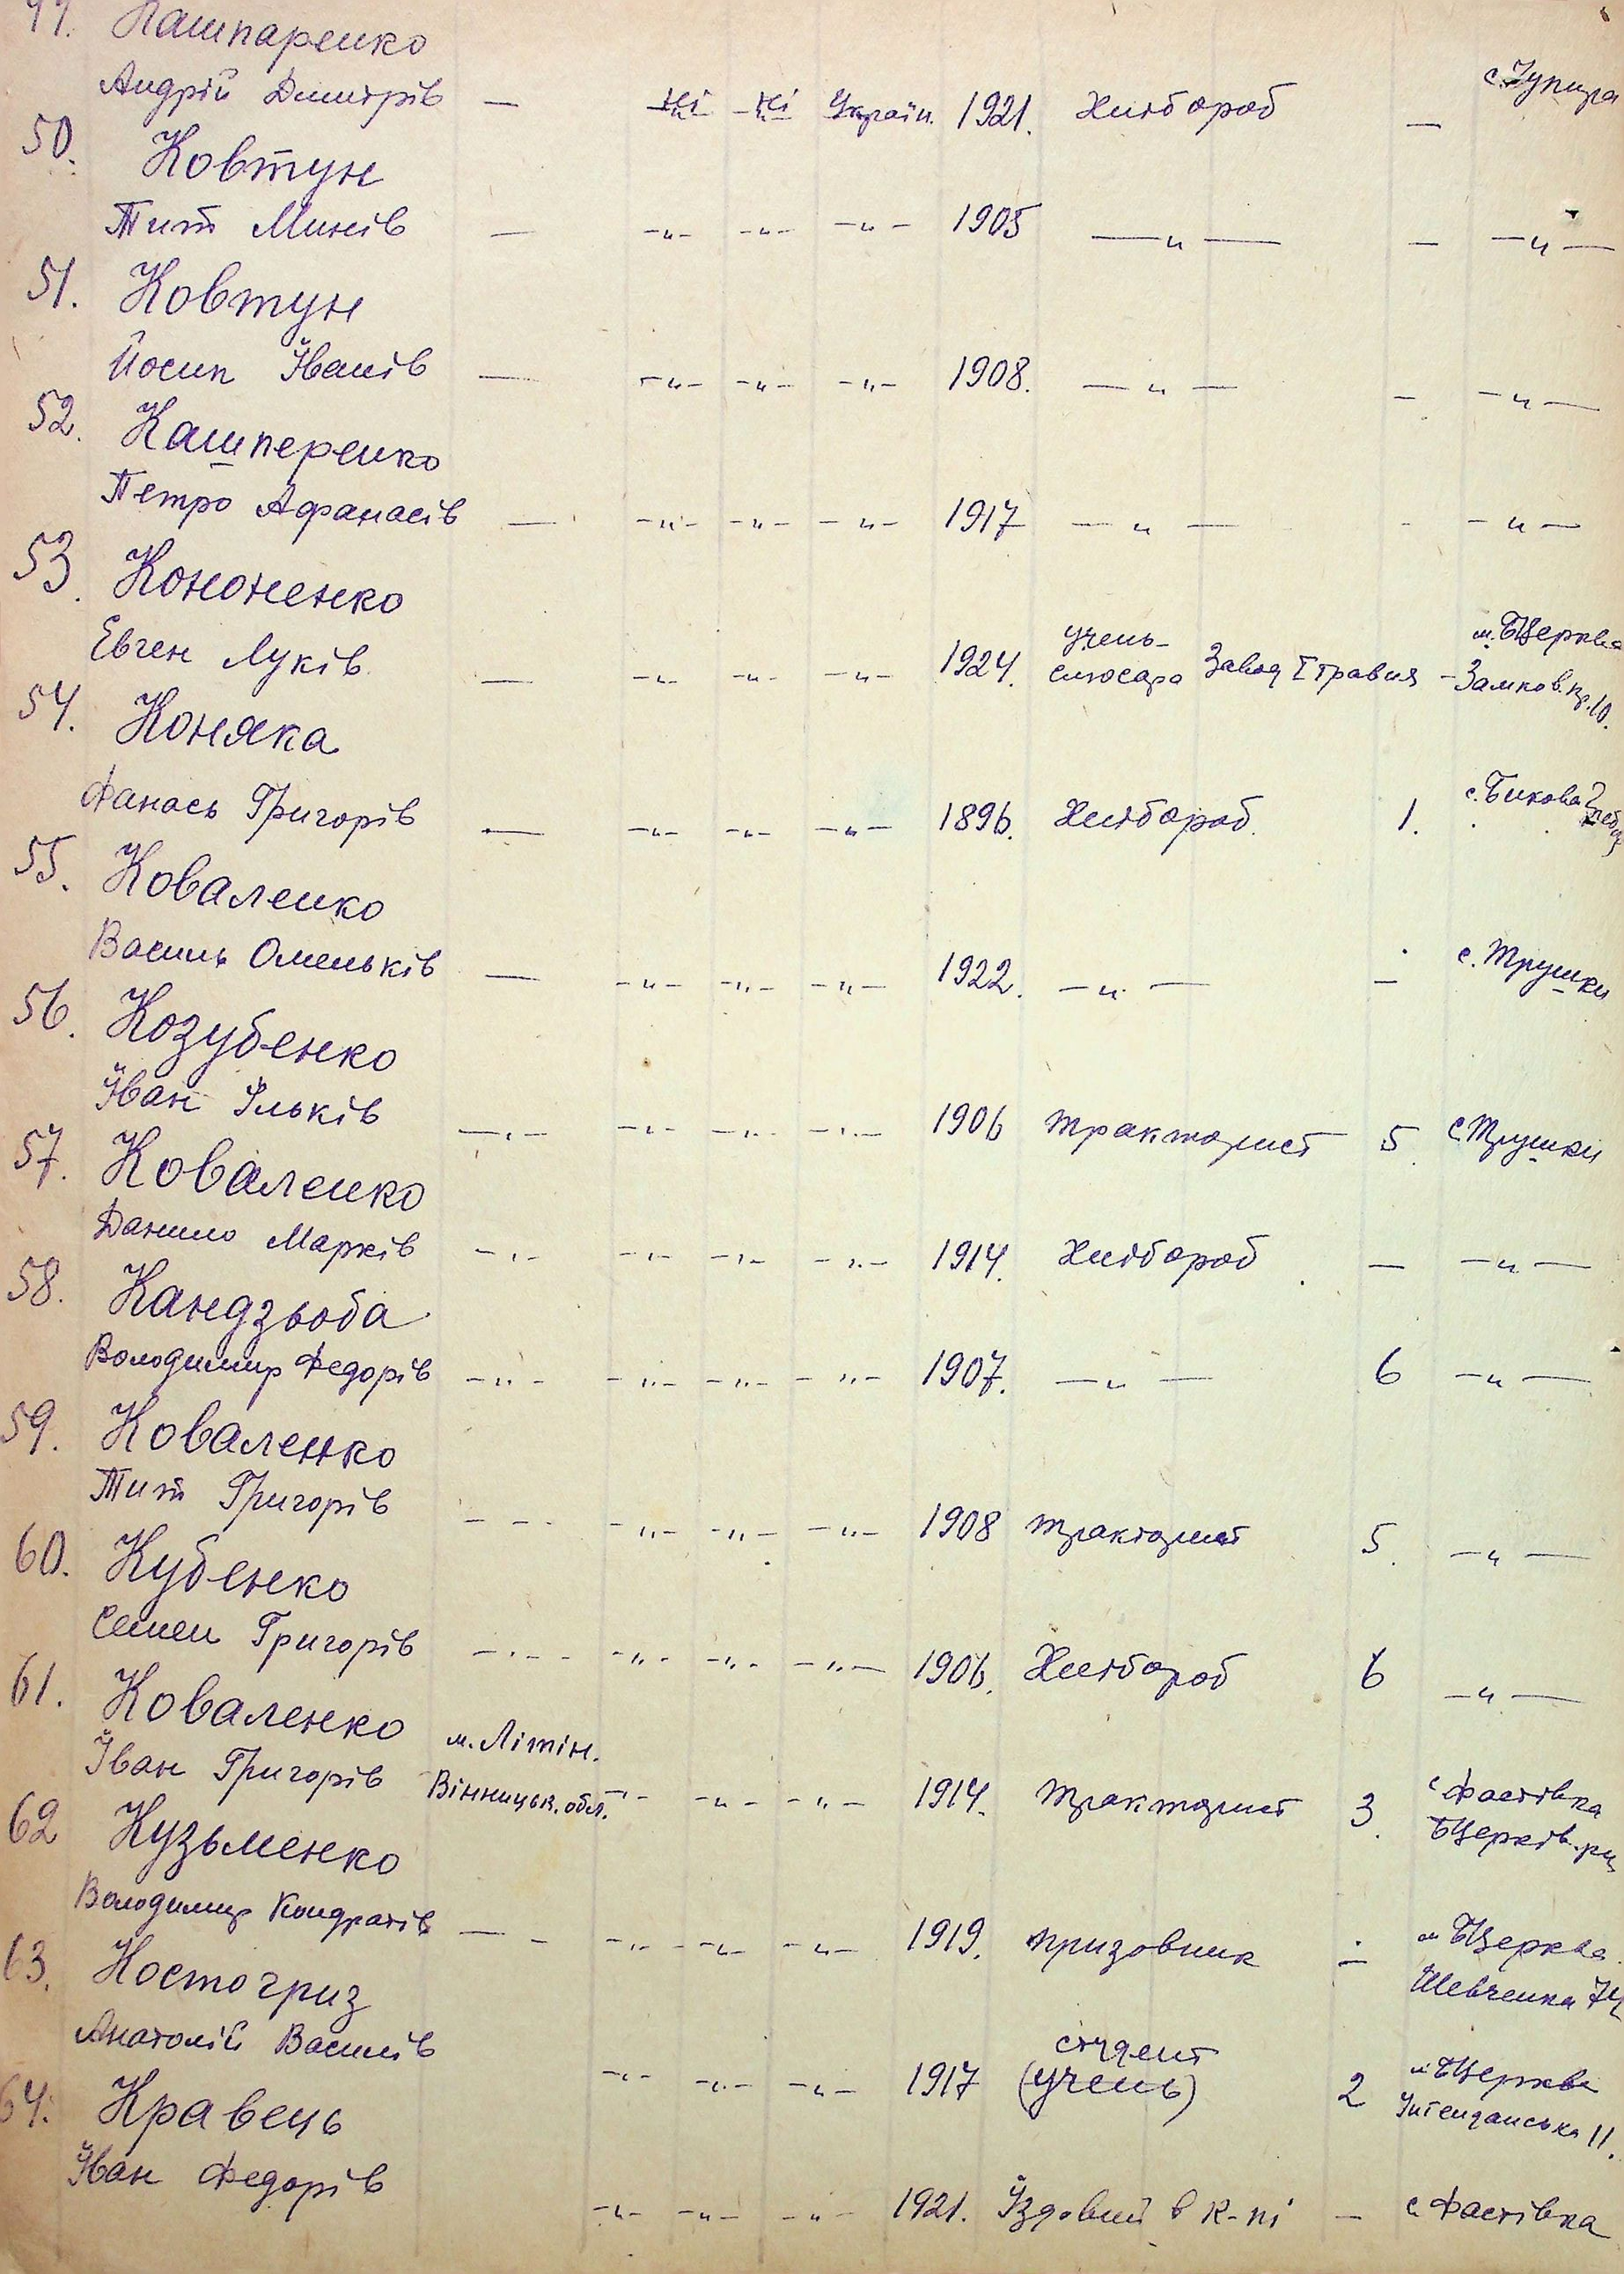 49. Кашпаренко
Андрій Дмитрів — Ні Ні Україн. 1921. Хлібороб — с.Чупира
50. Ковтун
Тит Минів — -"- -"- -"- 1905 —"— — —"—
51. Ковтун
Йосип Іванів — -"- -"- -"- 1908. —"— — —"—
52. Кашперенко
Петро Афанасів — -"- -"- -"- 1917 —"— - —"—
53. Кононенко
Евген Луків — -"- -"- -"- 1924. учень-слюсара Завод І Травня - м. БЦерква Замков. пр. 10.
54. Коняка
Фанась Григорів — -"- -"- -"- 1896. Хлібороб. 1. с. Бикова Гребля
55. Коваленко
Василь Омельків — -"- -"- -"- 1922. —"— — с. Трушки
56. Козубенко
Іван Ільків -"- -"- -"- -"- 1906 тракторист 5. с. Трушки
57. Коваленко
Данило Марків -"- -"- -"- -"- 1914. Хлібороб — —"—
58. Кандзьоба
Володимир Федорів -"- -"- -"- -"- 1907. —"— 6 —"—
59. Коваленко
Тит Григорів - - - -"- -"- -"- 1908 тракторист 5. —"—
60. Кубенко
Семен Григорів -"- -"- -"- -"- 1906. Хлібороб 6 —"—
61. Коваленко м. Літін.
Іван Григорів Вінницьк. обл. -"- -"- -"- 1914. тракторист 3. с Фастівка БЦерків. рн
62 Кузьменко
Володимир Кондратів — - -"- -"- -"- 1919. призовник — м БЦерква. Шевченка 74
63. Костогриз
Анатолій Василів -"- -"- -"- 1917 студент (учень) 2 м БЦерква Інтенданська 11.
64. Кравець
Іван Федорів -"- -"- -"- 1921. Їздовий в к-пі — с Фастівка